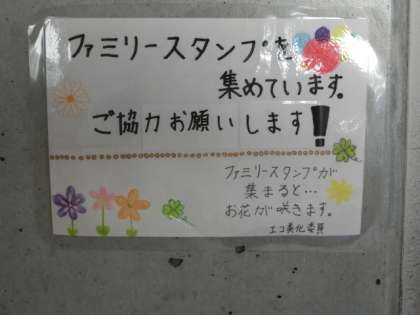 ファミリースタンプを
集めています。
ご協力お願いします!
ファミリースタンプが
集まると…
お花が咲きます。
エコ美化委員